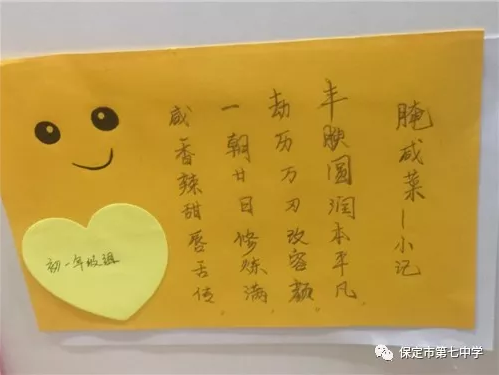 腌咸菜—小记
丰腴圆润本平凡
劫历万刃改容颜
一朝廿日修炼满
咸香辣甜唇舌传
初一年级组
保定市第七中学